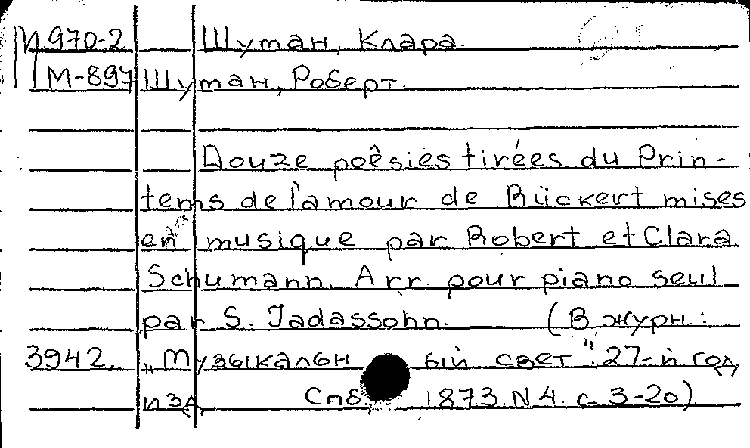 П970-2 Шуман, Клара
М-897 Шуман, Роберт.
Douze poêsies tirées du Prin-
tems de l'amour de Rückert mises
en musique par Robert et Clara
Schumann. Arr. pour piano seul
par S. Jadassohn. (В журн.:
3942. „Музыкальн ый свет" 27-й год
изд Спб 1873. N4. с. 3-20)